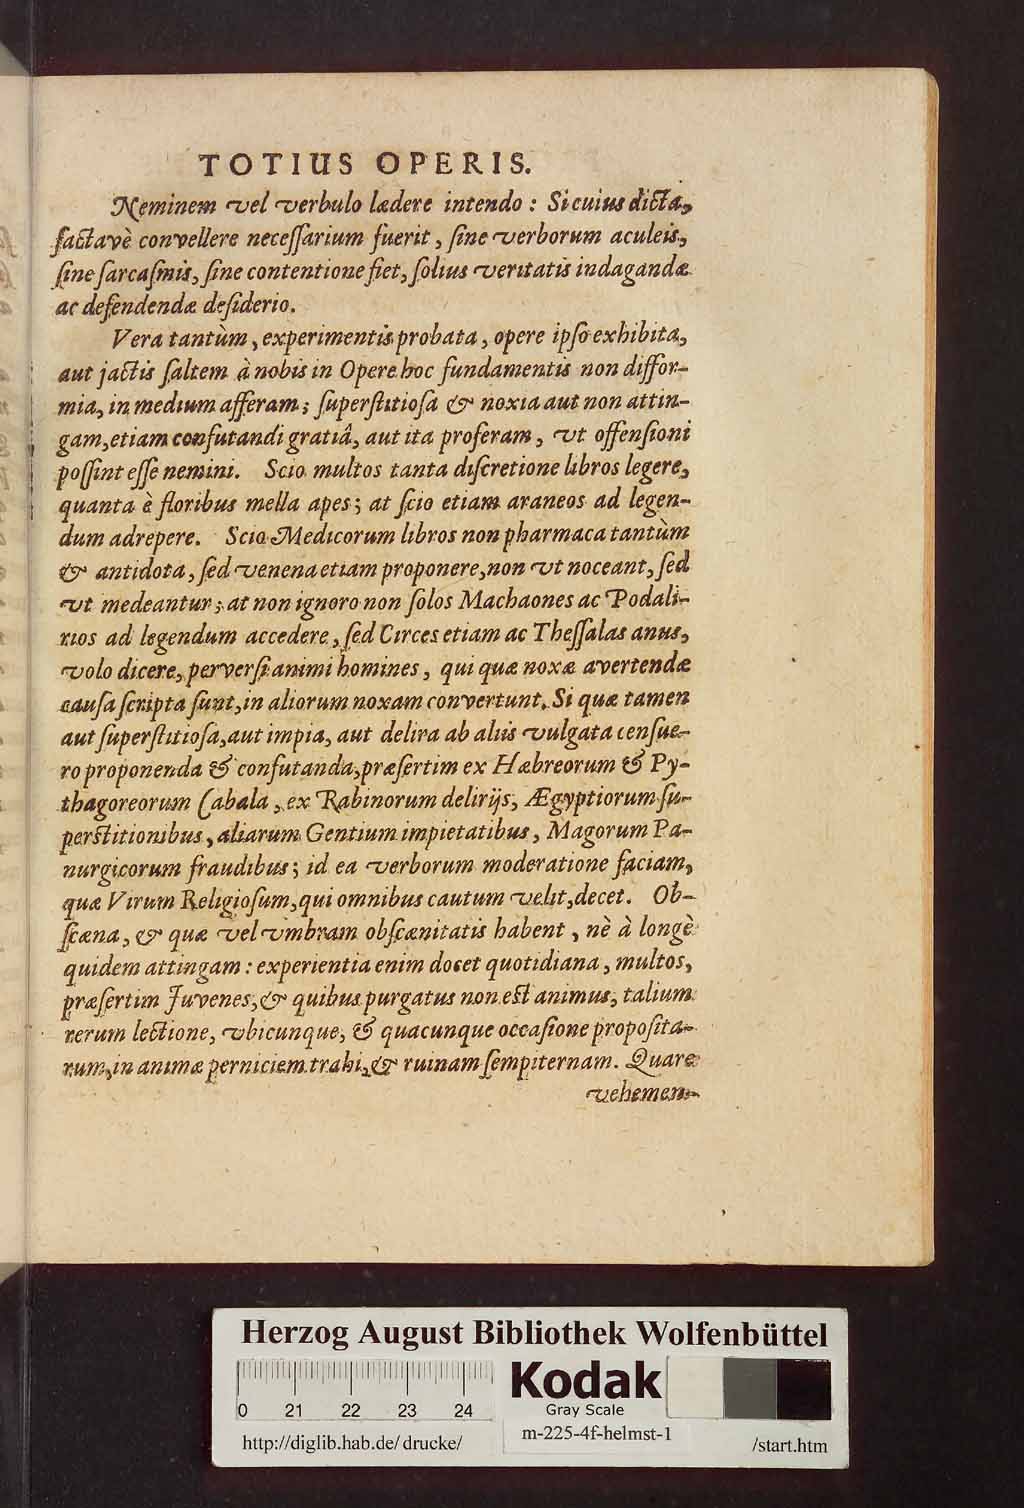 TOTIUS OPERIS.
Neminem vel verbulo lædere intendo : Si cuius dicta,
factavè convellere neceſſarium fuerit, ſine verborum aculeis,
ſine ſarcaſmis, ſine contentione fiet, ſolius veritatis indagandæ
ac defendendæ deſiderio.
Vera tantùm, experimentis probata, opere ipſo exhibita,
aut jactis ſaltem à nobis in Opere hoc fundamentis non diffor-
mia, in medium afferam; ſuperſtitioſa & noxia aut non attin-
gam, etiam confutandi gratiâ, aut ita proferam, vt offenſioni
poſſint eſſe nemini. Scio multos tanta diſcretione libros legere,
quanta è floribus mella apes; at ſcio etiam araneos ad legen-
dum adrepere. Scio Medicorum libros non pharmaca tantùm
& antidota, ſed venena etiam proponere, non vt noceant, ſed
vt medeantur; at non ignoro non ſolos Machaones ac Podali-
rios ad legendum accedere, ſed Circes etiam ac Theſſalas anus,
volo dicere, perverſi animi homines, qui quæ noxæ avertendæ
cauſa ſcripta ſunt, in aliorum noxam convertunt. Si quæ tamen
aut ſuperſtitioſa, aut impia, aut delira ab aliis vulgata cenſue-
ro proponenda & confutanda, præſertim ex Hæbreorum & Py-
thagoreorum Cabala, ex Rabinorum delirijs, Ægyptiorum ſu-
perſtitionibus, aliarum Gentium impietatibus, Magorum Pa-
nurgicorum fraudibus; id ea verborum moderatione faciam,
quæ Virum Religioſum, qui omnibus cautum velit, decet. Ob-
ſcæna, & quæ vel vmbram obſcænitatis habent, nè à longè
quidem attingam : experientia enim docet quotidiana, multos,
præſertim Juvenes, & quibus purgatus non eſt animus, talium
rerum lectione, vbicunque, & quacunque occaſione propoſita-
rum, in animæ perniciem trahi, & ruinam ſempiternam. Quare
vehemen-
Herzog August Bibliothek Wolfenbüttel
0 21 22 23 24
Kodak
Gray Scale
http://diglib.hab.de/drucke/
m-225-4f-helmst-1
/start.htm